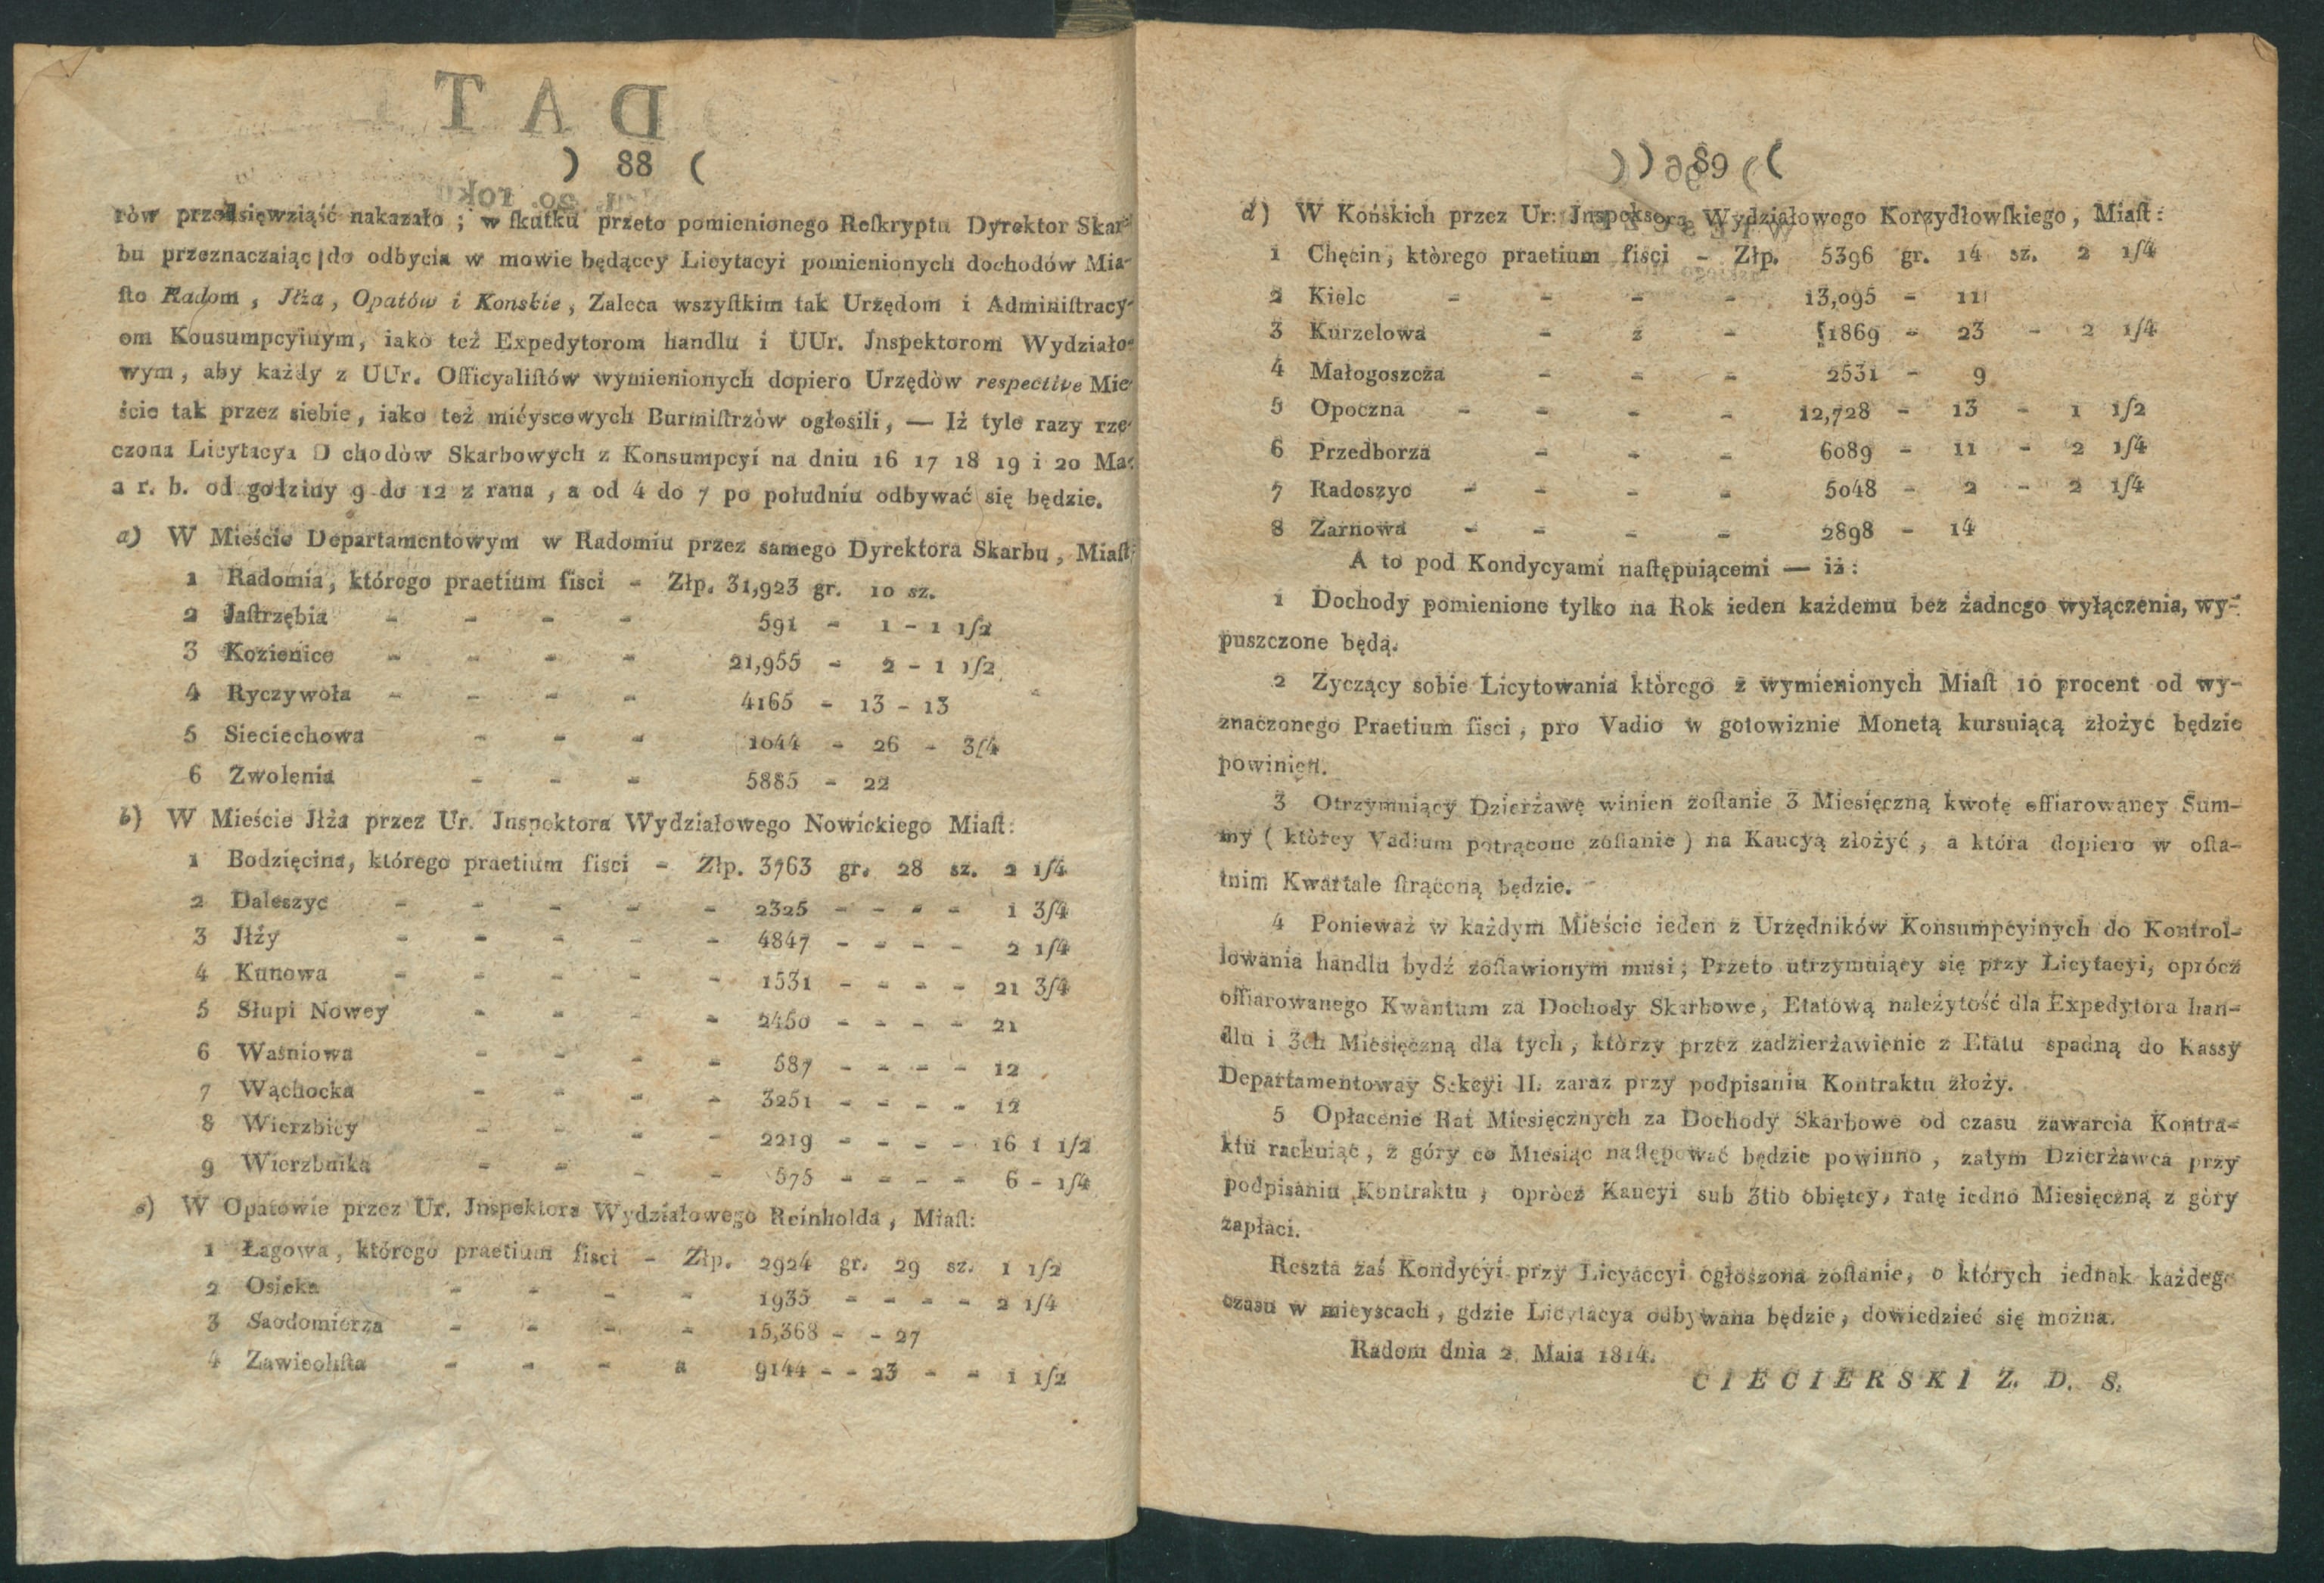 ) 88 (
rów przedsięwziąść nakazało ; w ſkutku przeto pomienionego Reſkryptu Dyrektor Skar-
bu przeznaczaiąc do odbycia w mowie będącey Licytacyi pomienionych dochodów Mia-
ſto Radom , Jłża , Opatów i Konskie , Zaleca wszyſtkim tak Urzędom i Adminiſtracy-
om Konsumpcyinym, iako też Expedytorom handlu i UUr. Jnspektorom Wydziało-
wym , aby każdy z UUr. Officyaliſtów wymienionych dopiero Urzędòw respective Mie-
ście tak przez siebie , iako też mićyscowych Burmiſtrzów ogłosili , — Iż tyle razy rze-
czona Licytacya D chodòw Skarbowych z Konsumpcyi na dniu 16 17 18 19 i 20 Ma-
a r. b. od godziny 9 do 12 z rana , a od 4 do 7 po południu odbywać się będzie.
a) W Mieście Departamentowym w Radomiu przez samego Dyrektora Skarbu , Miaſt:
1 Radomia, którego praetium fisci - Złp. 31,923 gr. 10 sz.
2 Jaſtrzębia - - - - 591 - 1 - 1 1/2
3 Kozienice - - - - 21,955 - 2 - 1 1/2
4 Ryczywoła - - - - 4165 - 13 - 13
5 Sieciechowa - - - 1044 - 26 - 3/4
6 Zwolenia - - - 5885 - 22
b) W Mieście Jłża przez Ur. Jnspektora Wydziałowego Nowickiego Miaſt:
1 Bodzięcina, którego praetium fisci - Złp. 3763 gr. 28 sz. 2 1/4
2 Daleszyc - - - - - 2325 - - - - 1 3/4
3 Jłży - - - - - 4847 - - - - 2 1/4
4 Kunowa - - - - - 1531 - - - - 21 3/4
5 Słupi Nowey - - - - 2450 - - - - 21
6 Waśniowa - - - - 587 - - - - 12
7 Wąchocka - - - - 3251 - - - - 12
8 Wierzbicy - - - - 2219 - - - - 16 1 1/2
9 Wierzbnika - - - - 575 - - - - 6 - 1/4
c) W Opatowie przez Ur. Jnspektora Wydziałowego Reinholda , Miaſt:
1 Łagowa , którego praetium fisci - Złp. 2924 gr. 29 sz. 1 1/2
2 Osieka - - - - 1935 - - - - 2 1/4
3 Saodomierza - - - - 15,368 - - 27
4 Zawichſta - - - a 9144 - - 23 - - 1 1/2
) 89 (
d) W Końskich przez Ur: Jnspeksora Wydziałowego Korzydłowſkiego , Miaſt:
1 Chęcin , ktòrego praetium fisci - Złp. 5396 gr. 14 sz. 2 1/4
2 Kielc - - - - 13,095 - 11
3 Kurzelowa - - - 1869 - 23 - 2 1/4
4 Małogoszcza - - - 2531 - 9
5 Opoczna - - - - 12,728 - 13 - 1 1/2
6 Przedborza - - - 6089 - 11 - 2 1/4
7 Radoszyc - - - - 5048 - 2 - 2 1/4
8 Zarnowa - - - - 2898 - 14
A to pod Kondycyami naſtępuiącemi — iż :
1 Dochody pomienione tylko na Rok ieden każdemu bez żadnego wyłączenia, wy-
puszczone będą.
2 Zyczący sobie Licytowania ktòrego z wymienionych Miaſt 10 procent od wy-
znaczonego Praetium fisci , pro Vadio w gotowiznie Monetą kursuiącą złożyć będzie
powinien.
3 Otrzymuiący Dzierżawę winien zoſtanie 3 Miesięczną kwotę offiarowaney Sum-
my ( którey Vadium potrącone zoſtanie ) na Kaucyą złożyć , a która dopiero w oſta-
tnim Kwartale ſtrąconą będzie.
4 Ponieważ w każdym Mieście ieden z Urzędników Konsumpcyinych do Kontrol-
lowania handlu bydź zoſtawionym musi ; Przeto utrzymuiący się przy Licytacyi, oprócz
offiarowanego Kwantum za Dochody Skarbowe, Etatową należytość dla Expedytora han-
dlu i 3ch Miesięczną dla tych , ktòrzy przez zadzierżawienie z Etatu spadną do Kassy
Departamentoway Sekcyi II. zaraz przy podpisaniu Kontraktu złoży.
5 Opłacenie Rat Miesięcznych za Dochody Skarbowe od czasu zawarcia Kontra-
ktu rachuiąc , z góry co Miesiąc naſtępować będzie powinno , zatym Dzierżawca przy
podpisaniu Kontraktu , oprócz Kaucyi sub 3tio obiętey, ratę iedno Miesięczną z góry
zapłaci.
Reszta zaś Kondycyi przy Licyaccyi ogłoszona zoſtanie, o których iednak każdego
czasu w mieyscach , gdzie Licytacya odbywana będzie, dowiedzieć się można.
Radom dnia 2. Maia 1814.
CIECIERSKI Z. D. S.